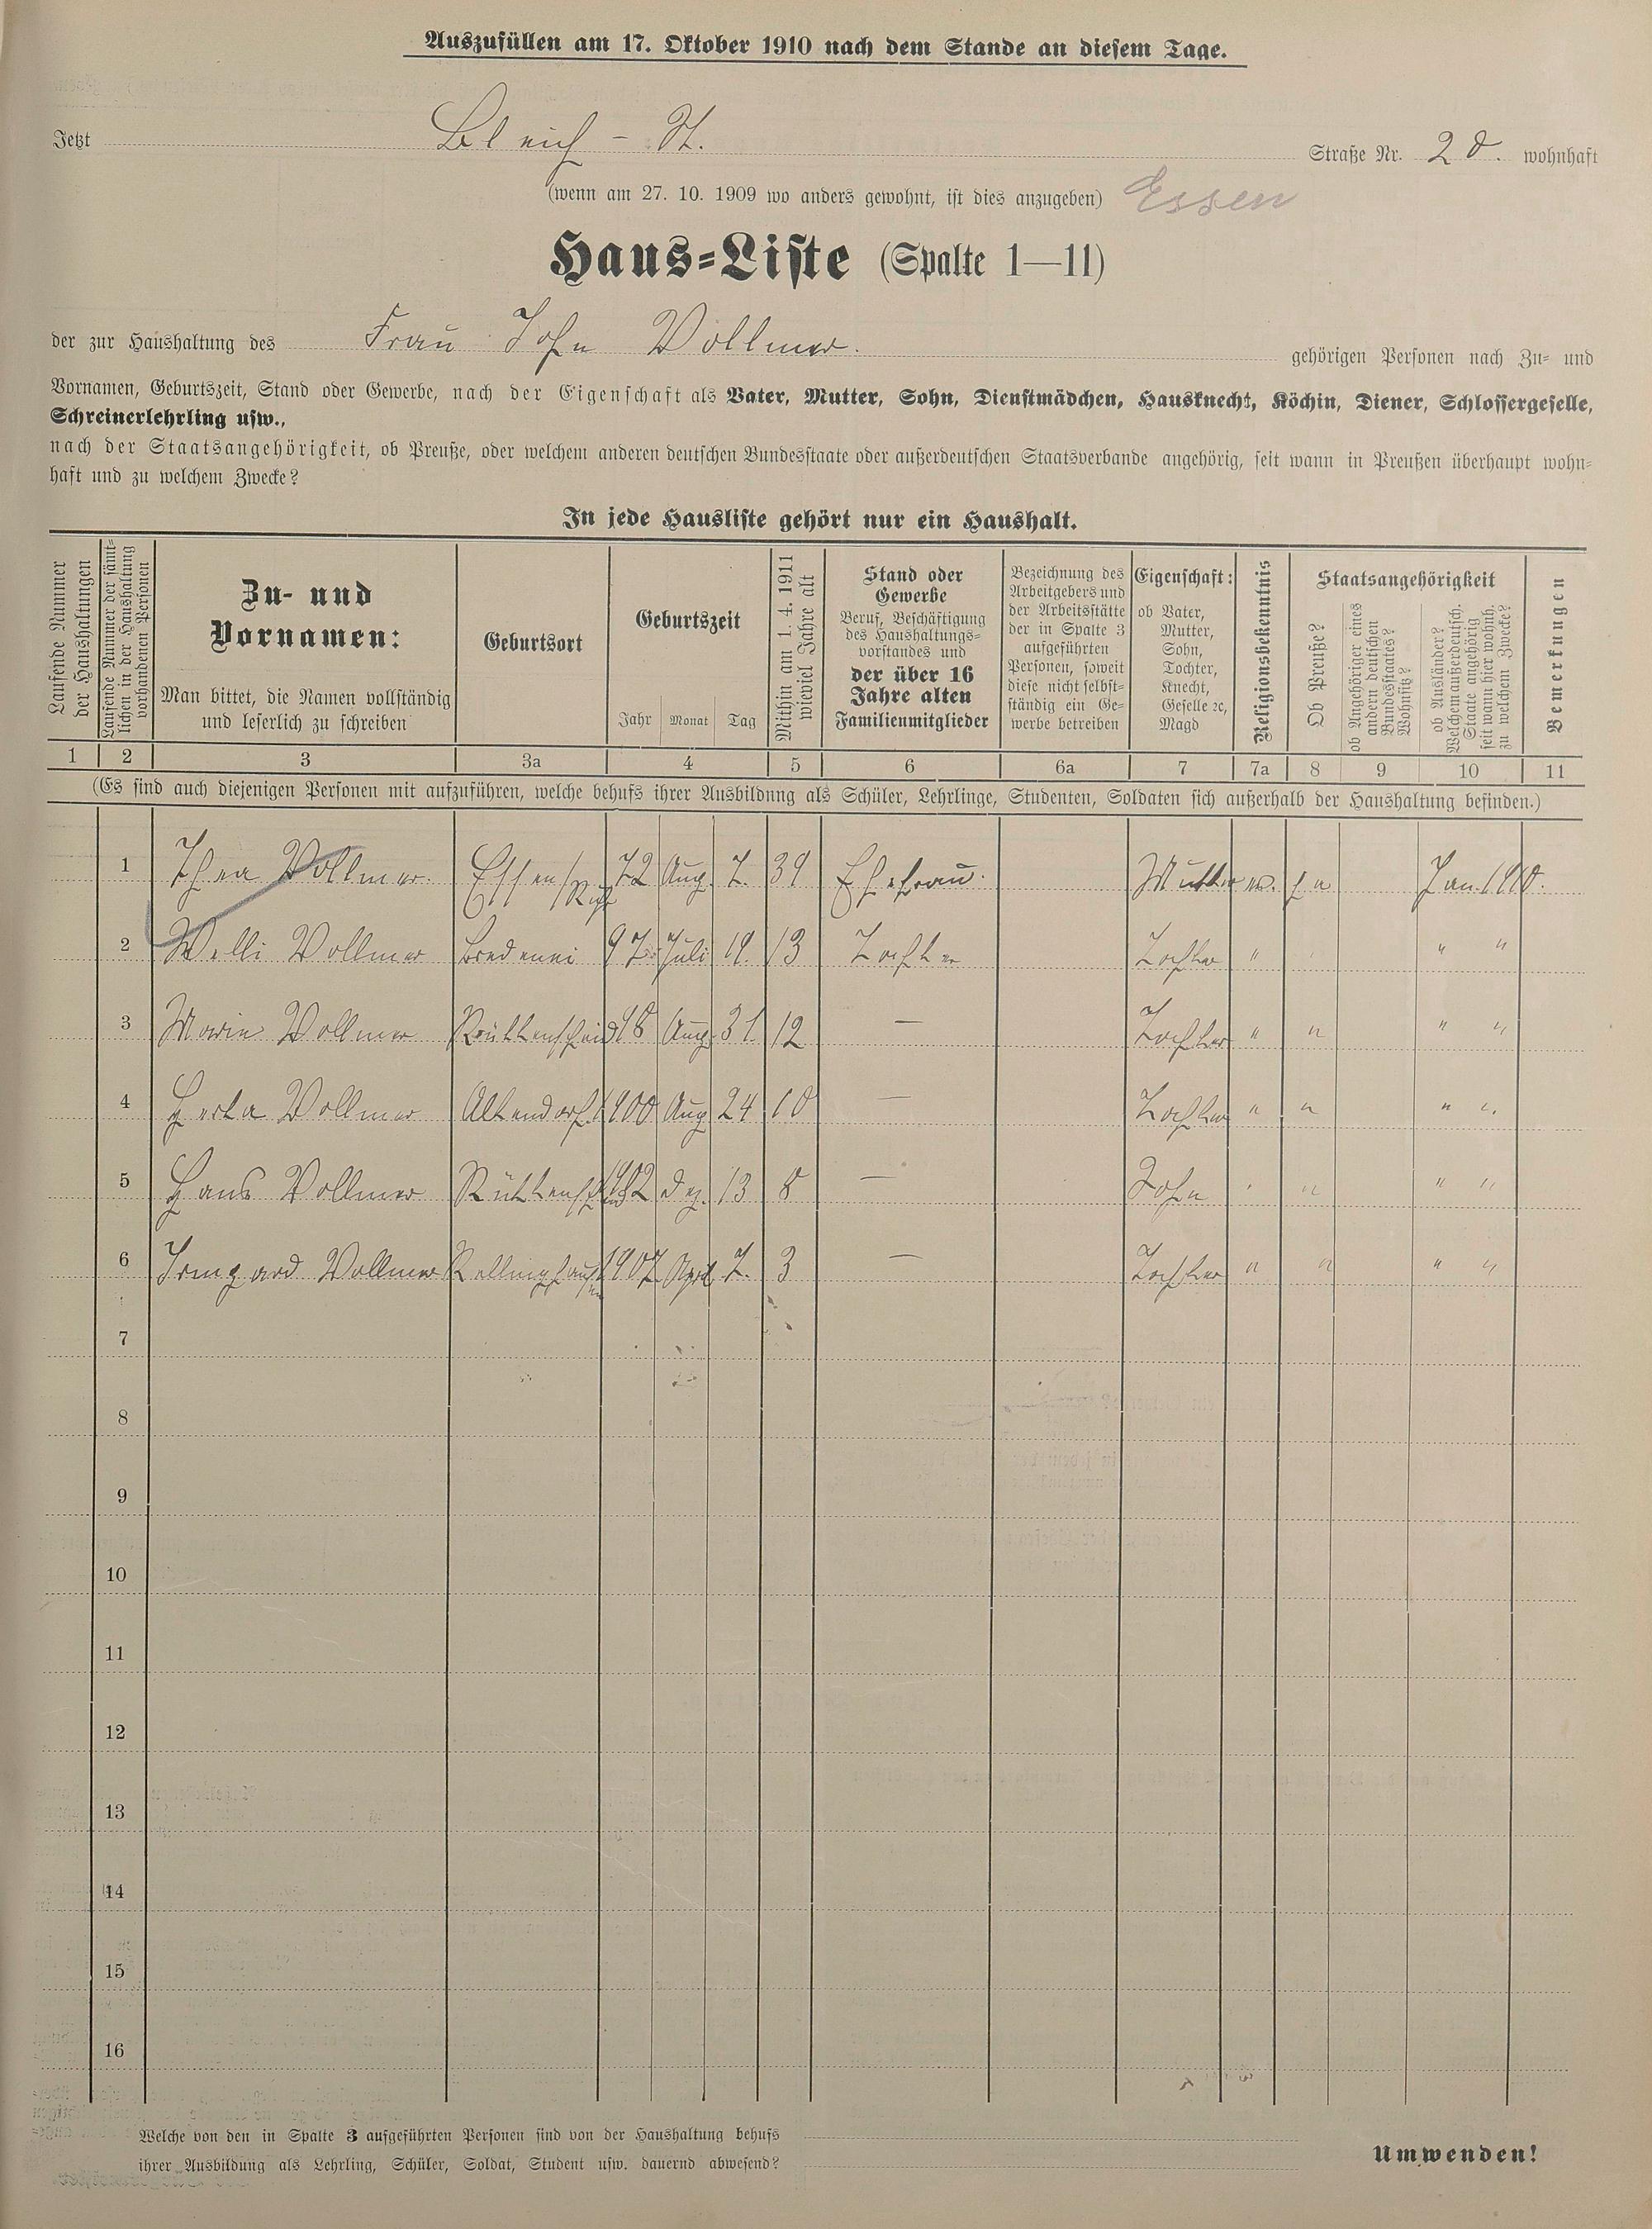 Auszufüllen am 17. Oktober 1910 nach dem Stande an diesem Tage.
Jetzt Bleich-St. Straße Nr. 28. wohnhaft
(wenn am 27. 10. 1909 wo anders gewohnt, ist dies anzugeben) Essen
Haus-Liste (Spalte 1—11)
der zur Haushaltung des Frau Joh. Vollmer. gehörigen Personen nach Zu- und
Vornamen, Geburtszeit, Stand oder Gewerbe, nach der Eigenschaft als Vater, Mutter, Sohn, Dienstmädchen, Hausknecht, Köchin, Diener, Schlossergeselle,
Schreinerlehrling usw.,
nach der Staatsangehörigkeit, ob Preuße, oder welchem anderen deutschen Bundesstaate oder außerdeutschen Staatsverbande angehörig, seit wann in Preußen überhaupt wohn-
haft und zu welchem Zwecke?
In jede Hausliste gehört nur ein Haushalt.
Laufende Nummer
der Haushaltungen
Laufende Nummer der sämt-
lichen in der Haushaltung
vorhandenen Personen
Zu- und
Vornamen:
Man bittet, die Namen vollständig
und leserlich zu schreiben
Geburtsort
Geburtszeit
Jahr Monat Tag
Mithin am 1. 4. 1911
wieviel Jahre alt
Stand oder
Gewerbe
Beruf, Beschäftigung
des Haushaltungs-
vorstandes und
der über 16
Jahre alten
Familienmitglieder
Bezeichnung des
Arbeitgebers und
der Arbeitsstätte
der in Spalte 3
aufgeführten
Personen, soweit
diese nicht selbst-
ständig ein Ge-
werbe betreiben
Eigenschaft:
ob Vater,
Mutter,
Sohn,
Tochter,
Knecht,
Geselle ꝛc,
Magd
Religionsbekenntnis
Staatsangehörigkeit
Ob Preuße?
ob Angehöriger eines
andern deutschen
Bundesstaates?
Wohnsitz?
ob Ausländer?
Welchem außerdeutsch.
Staate angehörig
seit wann hier wohnh.
zu welchem Zwecke?
Bemerkungen
1 2 3 3a 4 5 6 6a 7 7a 8 9 10 11
(Es sind auch diejenigen Personen mit aufzuführen, welche behufs ihrer Ausbildung als Schüler, Lehrlinge, Studenten, Soldaten sich außerhalb der Haushaltung befinden.)
1 Thea Vollmer. Essen/Ruhr 72 Aug. 7. 39 Ehefrau. Mutter ev. ja Jan. 1910.
2 Welli Vollmer Bredenei 97 Juli 19. 13 Tochter Tochter " " "
3 Marie Vollmer Rüttenscheid 98 Aug. 31 12 — Tochter " " " "
4 Herta Vollmer Altendorf. 1900 Aug 24 10 — Tochter " " " "
5 Hans Vollmer Rüttensch. 1902 Dez. 13 8 — Sohn " " " "
6 Irmgard Vollmer Rellinghausen 1907 April 7. 3 — Tochter " " " "
7
8
9
10
11
12
13
14
15
16
Welche von den in Spalte 3 aufgeführten Personen sind von der Haushaltung behufs
ihrer Ausbildung als Lehrling, Schüler, Soldat, Student usw. dauernd abwesend?
Umwenden!